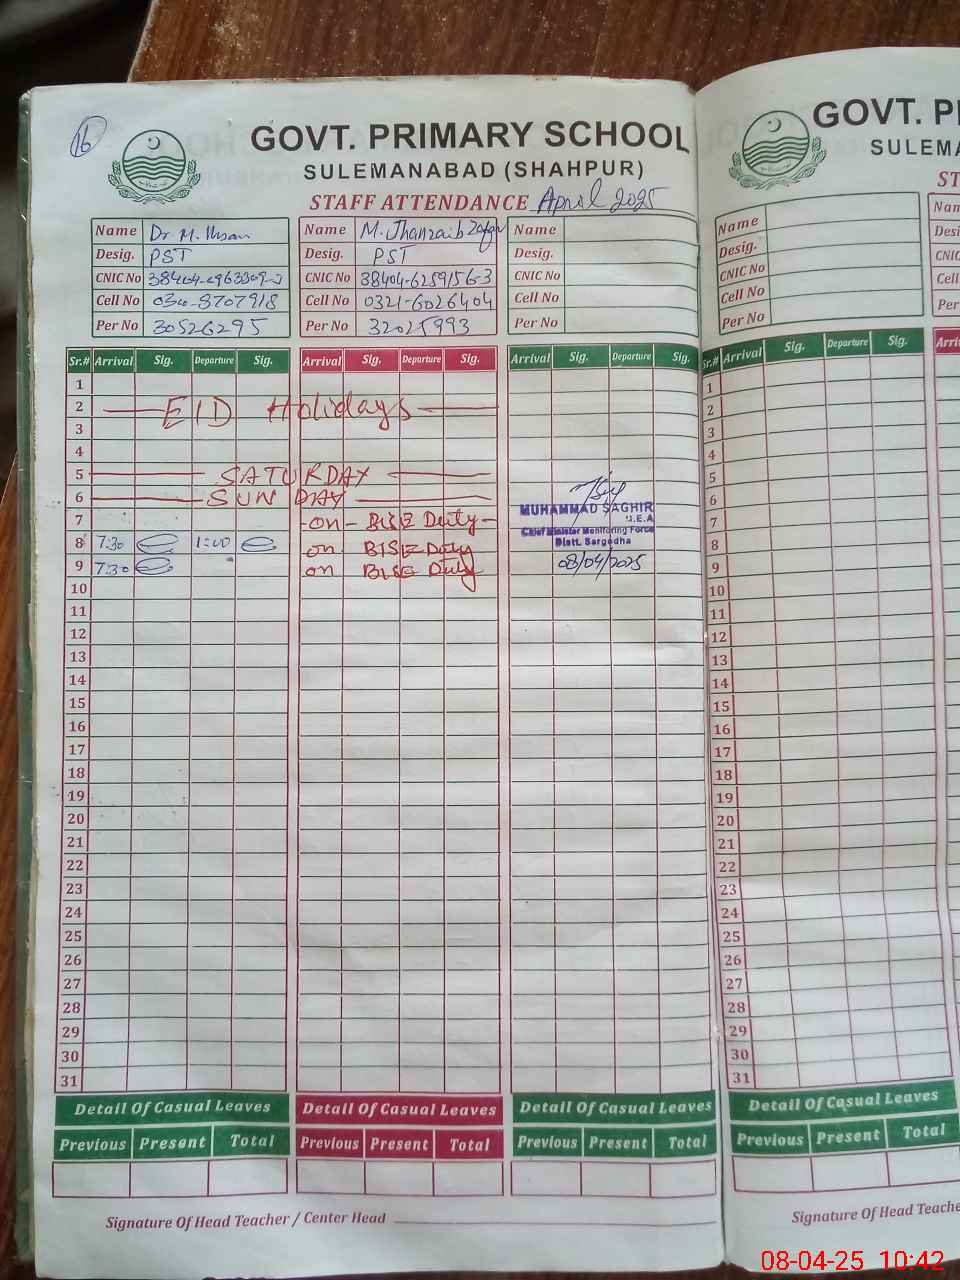 16
GOVT. PRIMARY SCHOOL
SULEMANABAD (SHAHPUR)
STAFF ATTENDANCE April 2025
Name Dr M. Ihsan
Desig. PST
CNIC No
Cell No
Per No 30526295
Name M. Jhanzaib Zafar
Desig. PST
CNIC No 38404-6259156-3
Cell No 0321-6026404
Per No 32025993
Name
Desig.
CNIC No
Cell No
Per No
Sr.# Arrival Sig. Departure Sig. Arrival Sig. Departure Sig. Arrival Sig. Departure Sig.
1
2 EID Holidays
3
4
5 SATURDAY
6 SUNDAY
7 -on- BISE Duty-
8 7:30 1:00 on BISE Duty
9 7:30 on BISE Duty
10
11
12
13
14
15
16
17
18
19
20
21
22
23
24
25
26
27
28
29
30
31
MUHAMMAD SAGHIR
M.E.A
Chief Minister Monitoring Force
Distt. Sargodha
08/04/2025
Detail Of Casual Leaves Detail Of Casual Leaves Detail Of Casual Leaves
Previous Present Total Previous Present Total Previous Present Total
Signature Of Head Teacher / Center Head
GOVT. P
SULEM
ST
Name
Desig.
CNIC No
Cell No
Per No
Nam
Desi
CNIC
Cel
Per
Sr.# Arrival Sig. Departure Sig. Arri
1
2
3
4
5
6
7
8
9
10
11
12
13
14
15
16
17
18
19
20
21
22
23
24
25
26
27
28
29
30
31
Detail Of Casual Leaves
Previous Present Total
Signature Of Head Teache
08-04-25 10:42